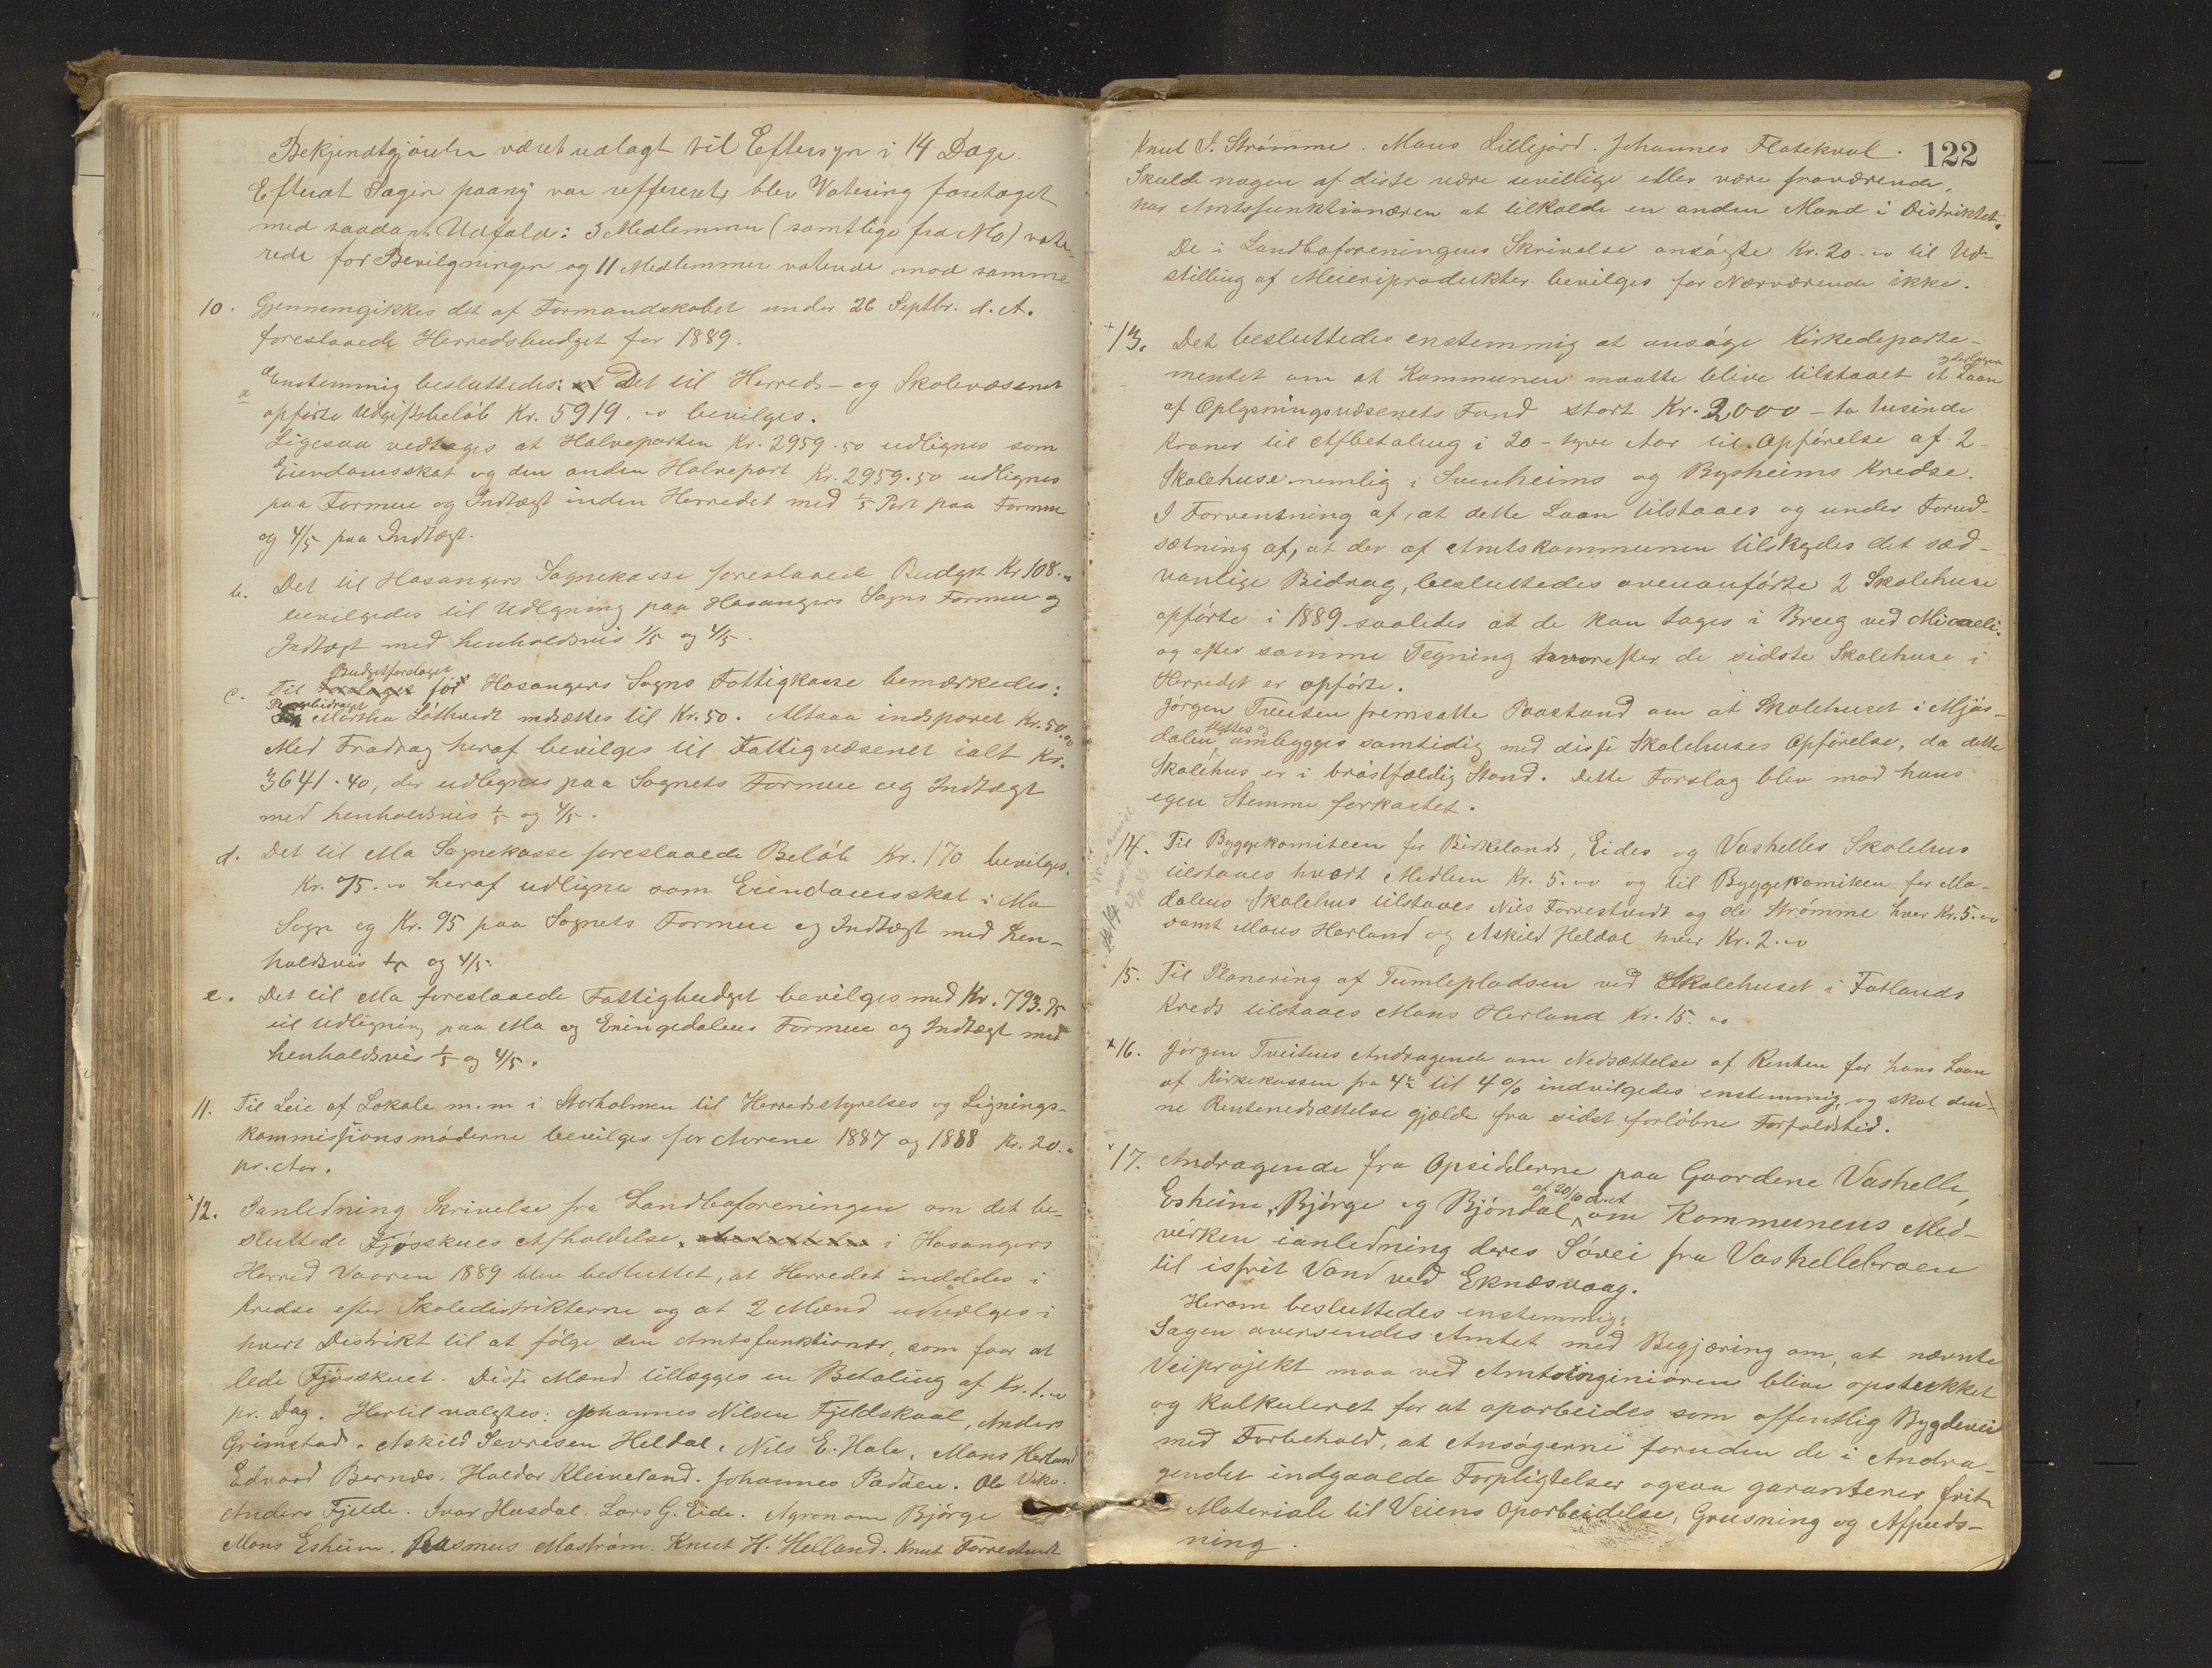 Bekjendtgjörelse været udlagt til Eftersyn i 14 Dage.
Efterat Sagen paany var refereret, blev Votering foretaget
med saadant Udfald: 3 Medlemmer (samtlige fra Mo) vote-
rede for Bevilgningen og 11 Medlemmer voterede mod samme
10. Gjennemgikkes det af Formandskabet under 26 Septbr. d. A.
foreslaaede Herredsbudget for 1889.
Enstemmig besluttedes:
a Det til Herreds- og Skolevæsenet
opförte Udgiftsbelöb Kr. 5919. " bevilges.
Ligesaa vedtoges at Halveparten Kr. 2959.50 udlignes som
Eiendomsskat og den anden Halvepart Kr. 2959.50 udlignes
paa Formue og Indtægt inden Herredet med 1/5 Part paa Formue
og 4/5 paa Indtægt.
b. Det til Hosangers Sognekasse foreslaaede Budget Kr 108."
bevilgedes til Udligning paa Hosangers Sogns Formue og
Indtægt med henholdsvis 1/5 og 4/5.
c. Til Budgetforslaget for Hosangers Sogns Fattigkasse bemærkedes:
Martha Löthvedt nedsættes til Kr. 50. Altsaa indsparet Kr. 50.00
Med Fradrag heraf bevilges til Fattigvæsenet ialt Kr.
3641.40, der udlignes paa Sognets Formue og Indtægt
med henholdsvis 1/5 og 4/5.
d. Det til Mo Sognekasse foreslaaede Belöb Kr. 170 bevilges.
Kr. 75. " heraf udlignes som Eiendomsskat i Mo
Sogn og Kr. 95 paa Sognets Formue og Indtægt med hen-
holdsvis 1/5 og 4/5.
e. Det til Mo foreslaaede Fattigbudget bevilges med Kr. 793.75
til Udligning paa Mo og Eningedalens Formue og Indtægt med
henholdsvis 1/5 og 4/5.
11. Til Leie af Lokale m.m i Storholmen til Herredsstyrelses og Lignings-
kommissionsmöderne bevilges for Aarene 1887 og 1888 Kr. 20."
pr. Aar.
12. Ianledning Skrivelse fra Landboforeningen om det be-
sluttede Fjösskues Afholdelse i Hosangers
Herred Vaaren 1889 blev besluttet, at Herredet inddeles i
Kredse efter Skoledistrikterne og at 2 Mænd udvælges i
hvert Distrikt til at fölge den Amtsfunktionær, som faar at
lede Fjösskuet. Disse Mænd tillægges en Betaling af Kr. 1."
pr. Dag. Hertil valgtes: Johannes Nilsen Fjeldskaal, Anders
Grimstad. Askild Sevresen Heldal. Nils E. Hole. Mons Herland
Edvard Bernæs. Haldor Kleiveland. Johannes Padden. Ole Vike.
Anders Fjelde. Ivar Husdal. Lars G. Eide. Agronom Björge
Mons Esheim. Rasmus Mostrøm. Knut H. Helland. Knut Forrestvedt
122
Knut I. Strømme. Mons Lillejord. Johannes Flatekval.
Skulde nogen af disse være uvillige eller være fraværende,
har Amtsfunktionæren at tilkalde en anden Mand i Distriktet.
De i Landboforeningens Skrivelse ansögte Kr. 20." til Ud-
stilling af Meieriprodukter bevilges for Nærværende ikke.
13. Det besluttedes enstemmig at ansöge Kirkedeparte-
mentet om at Kommunen maatte blive tilstaaet et yderligere Laan
af Oplysningsvæsenets Fond stort Kr. 2000 - to tusinde
Kroner til Afbetaling i 20 - tyve Aar til Opförelse af 2
Skolehuse nemlig i Svenheims og Bysheims Kredse.
I Forventning af, at dette Laan tilstaaes og under Forud-
sætning af, at der af Amtskommunen tilskydes det sæd-
vanlige Bidrag, besluttedes ovenanförte 2 Skolehuse
opförte i 1889 saaledes at de kan tages i Brug ved Micaeli.
og efter samme Tegning hvorefter de sidste Skolehuse i
Herredet er opförte.
Jörgen Tveiten fremsatte Paastand om at Skolehuset i Mjös-
dalen flyttes og ombygges samtidig med disse Skolehuses Opförelse, da dette
Skolehus er i bröstfældig Stand. Dette Forslag blev mod hans
egen Stemme forkastet.
14. Til Byggekomiteen for Birkelands, Eides og Vashelles Skolehus
tilstaaes hvert Medlem Kr. 5." og til Byggekomiteen for Mo-
dalens Skolehus tilstaaes Nils Forrestvedt og Ole Strømme hver Kr. 5."
samt Mons Herland og Askild Heldal hver Kr. 2."
15. Til Planering af Tumlepladsen ved Skolehuset i Fotlands
Kreds tilstaaes Mons Herland Kr. 15. "
16. Jörgen Tveitens Andragende om Nedsættelse af Renten for hans Laan
af Kirkekassen fra 4½ til 4% indvilgedes enstemmig, og skal den-
ne Rentenedsættelse gjælde fra sidst forløbne Forfaldstid.
17. Andragende fra Opsidderne paa Gaardene Vashelle,
Esheim, Björge og Bjöndal, af 20/10 d. A. om Kommunens Med-
virken ianledning deres Sövei fra Vashellebroen
til isfrit Vand ved Eknæsvaag.
Herom besluttedes enstemmig:
Sagen oversendes Amtet med Begjæring om, at nævnte
Veiprojekt maa ved Amtsinginiören blive opstukket
og kalkuleret for at oparbeides som offentlig Bygdevei
med Forbehold, at Ansögerne foruden de i Andra-
gendet indgaaede Forpligtelser ogsaa garanterer frit
Materiale til Veiens Oparbeidelse, Grusning og Afpuds-
ning.